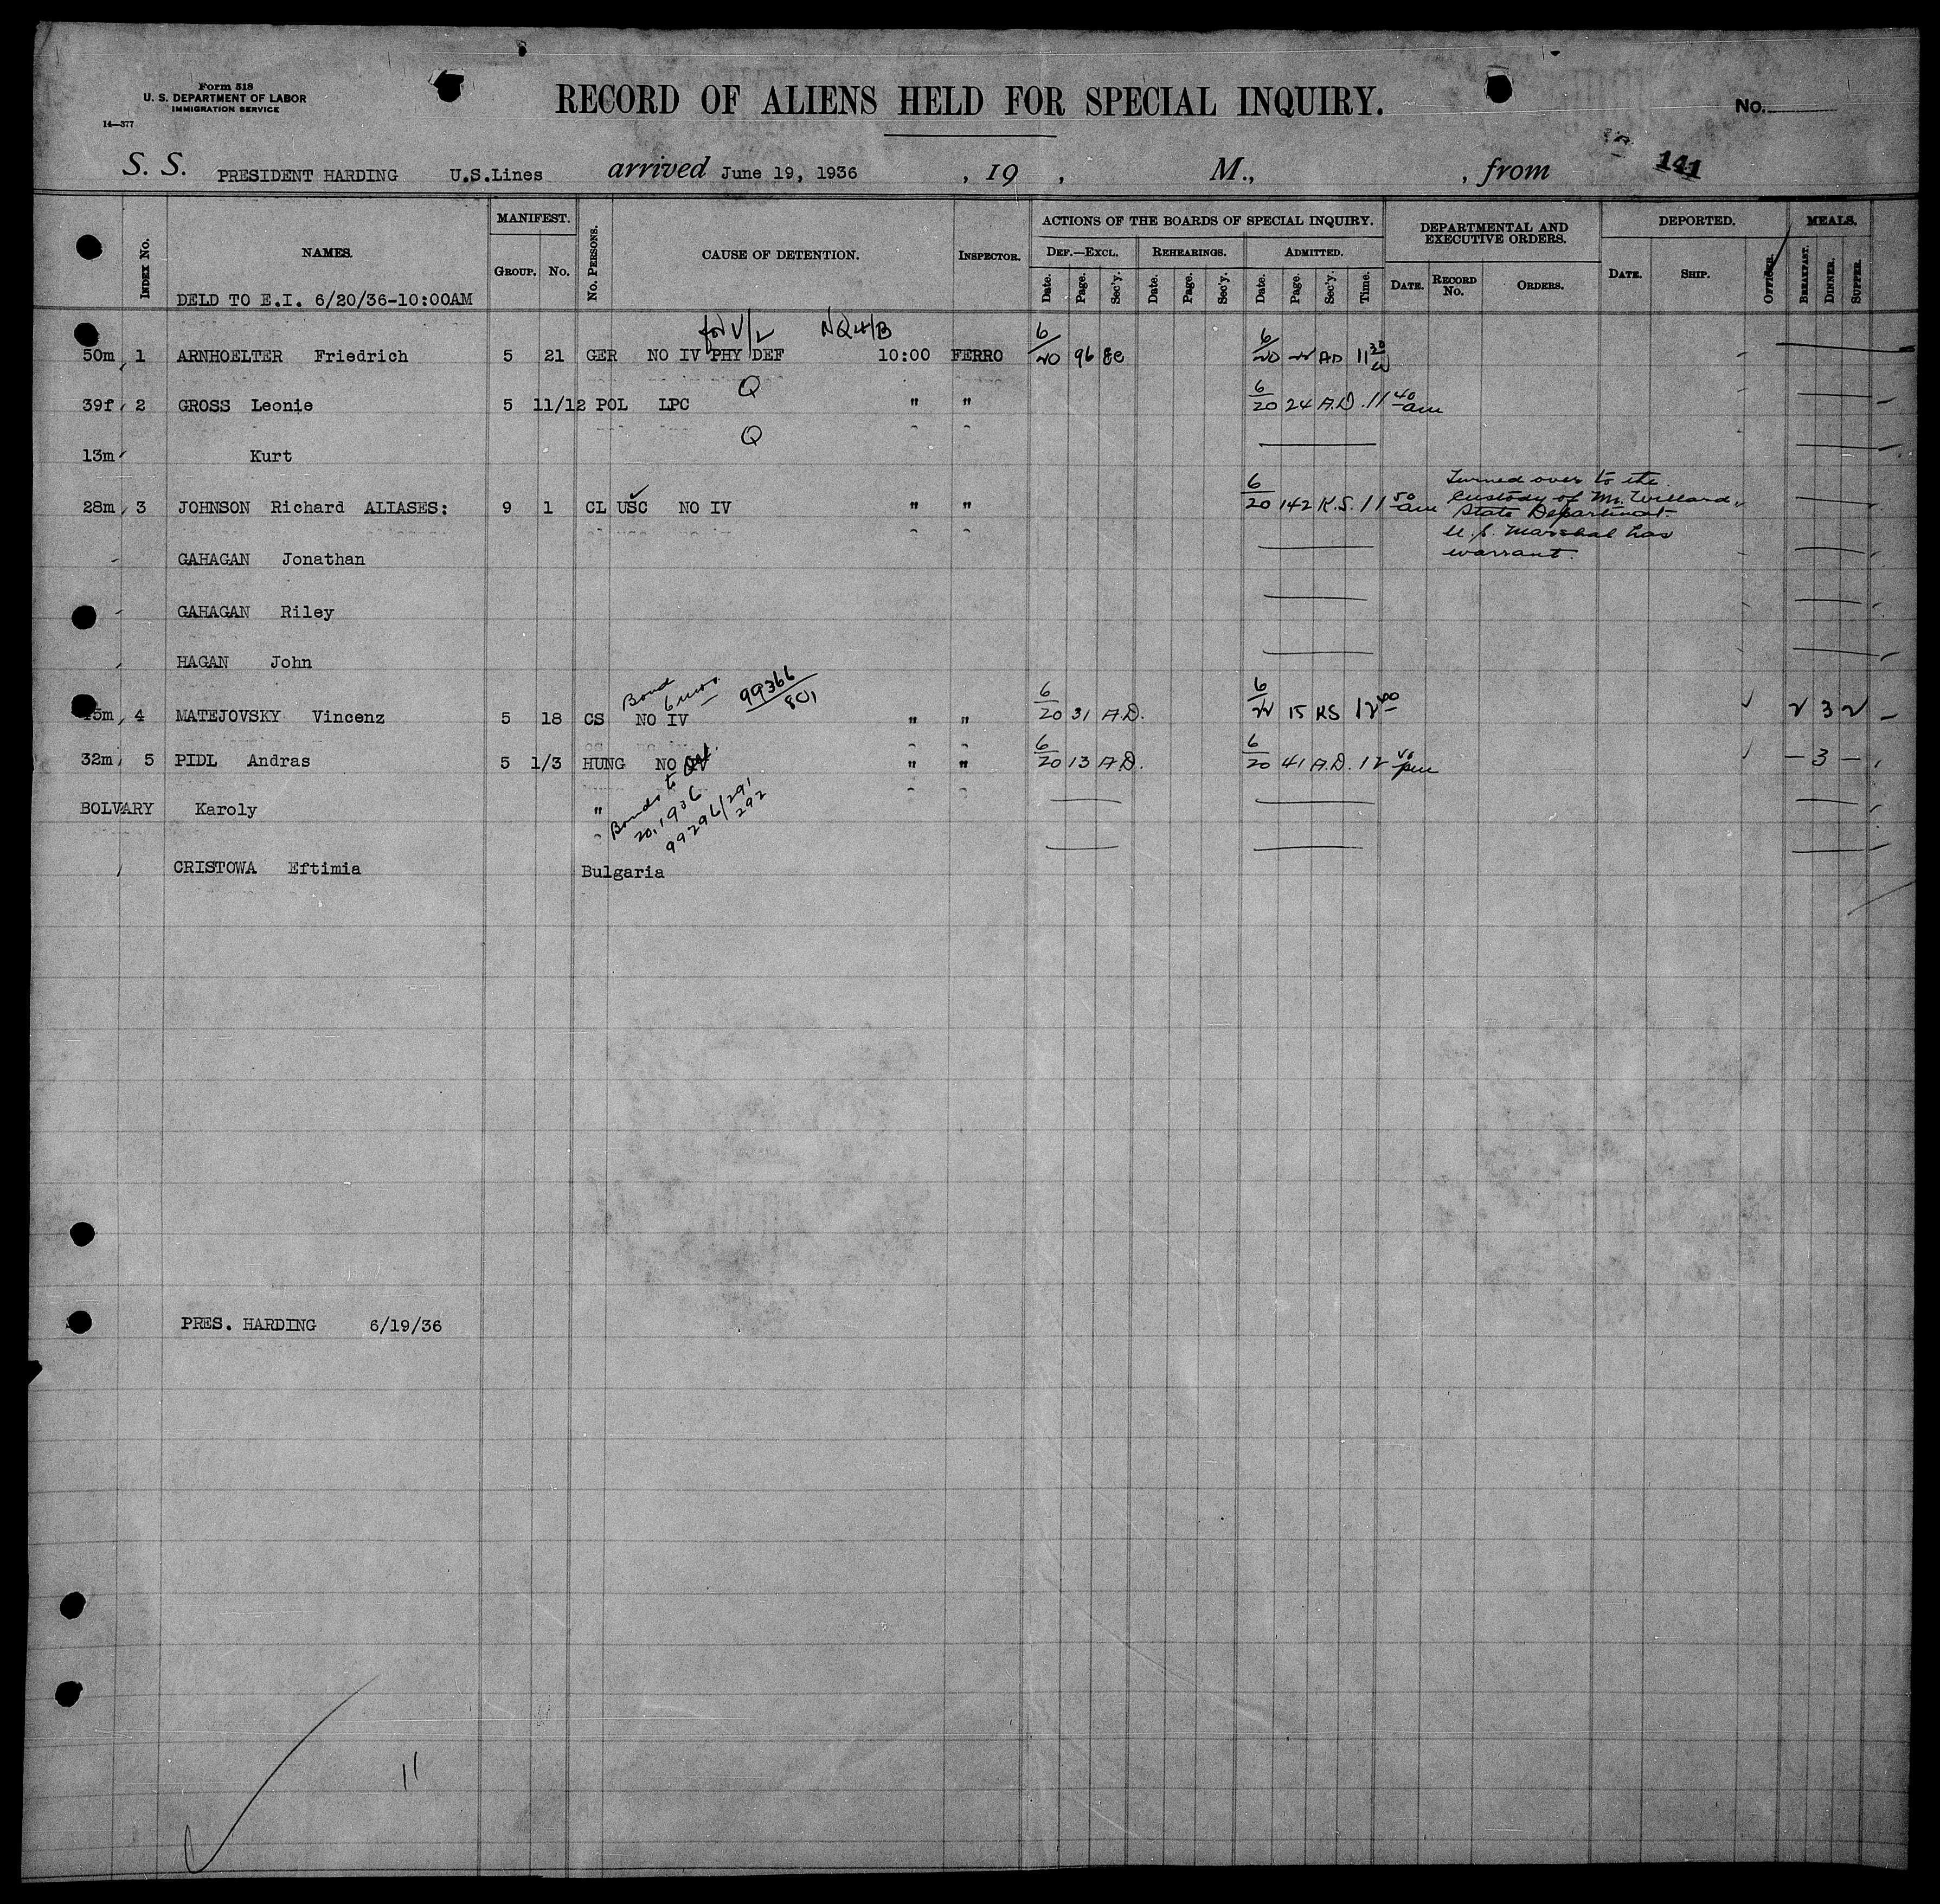 Form 518
U. S. DEPARTMENT OF LABOR
IMMIGRATION SERVICE
14—377
RECORD OF ALIENS HELD FOR SPECIAL INQUIRY.
No.
S. S. PRESIDENT HARDING U.S.Lines arrived June 19, 1936 , 19 , M., , from 141
INDEX No. NAMES. MANIFEST. GROUP. No. No. PERSONS. CAUSE OF DETENTION. INSPECTOR. ACTIONS OF THE BOARDS OF SPECIAL INQUIRY. DEPARTMENTAL AND EXECUTIVE ORDERS. DEPORTED. MEALS.
DEF.—EXCL. REHEARINGS. ADMITTED.
Date. Page. Sec'y. Date. Page. Sec'y. Date. Page. Sec'y. Time. DATE. RECORD No. ORDERS. DATE. SHIP. OFFICER. BREAKFAST. DINNER. SUPPER.
DELD TO E.I. 6/20/36-10:00AM
for V/L
50m 1 ARNHOELTER Friedrich 5 21 GER NO IV PHY DEF 10:00 FERRO 6/20 96 6/20 AD 11 30
Q
39f 2 GROSS Leonie 5 11/12 POL LPC " " 6/20 24 A.D. 11 40 am
Q
13m Kurt
28m 3 JOHNSON Richard ALIASES: 9 1 CL USC NO IV " " 6/20 142 K.S. 11 50 am
Turned over to the
Custody of Mr. Willard
State Department.
U.S. Marshal has
warrant.
GAHAGAN Jonathan
GAHAGAN Riley
HAGAN John
Bond
6 mos. 99366/801
45m 4 MATEJOVSKY Vincenz 5 18 CS NO IV " " 6/20 31 A.D. 6/22 15 KS 12 00 2 3 2
32m 5 PIDL Andras 5 1/3 HUNG NO IV " " 6/20 13 A.D. 6/20 41 A.D. 12 40 pm 3
BOLVARY Karoly "
Bonds to Oct.
20, 1936
99296/291
292
CRISTOWA Eftimia Bulgaria
PRES. HARDING 6/19/36
11